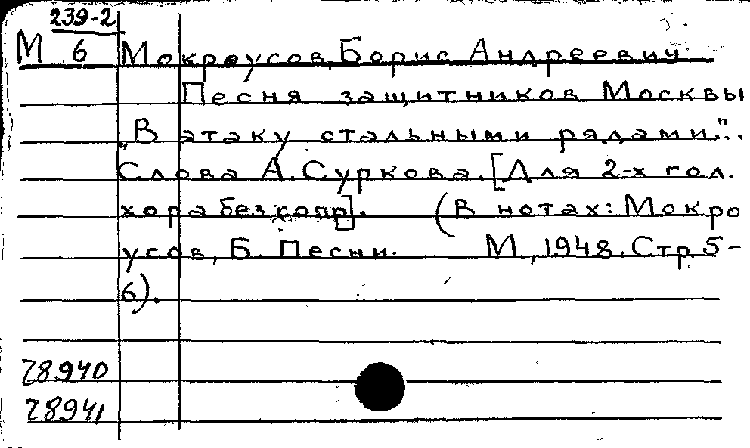 239-2
М 6 Мокроусов, Борис Андреевич
Песня защитников Москвы
"В атаку стальными рядами."..
Слова А. Суркова. [Для 2-х гол.
хора без сопр]. (В нотах: Мокро
усов, Б. Песни. М., 1948. Стр 5-
6).
28940
28941